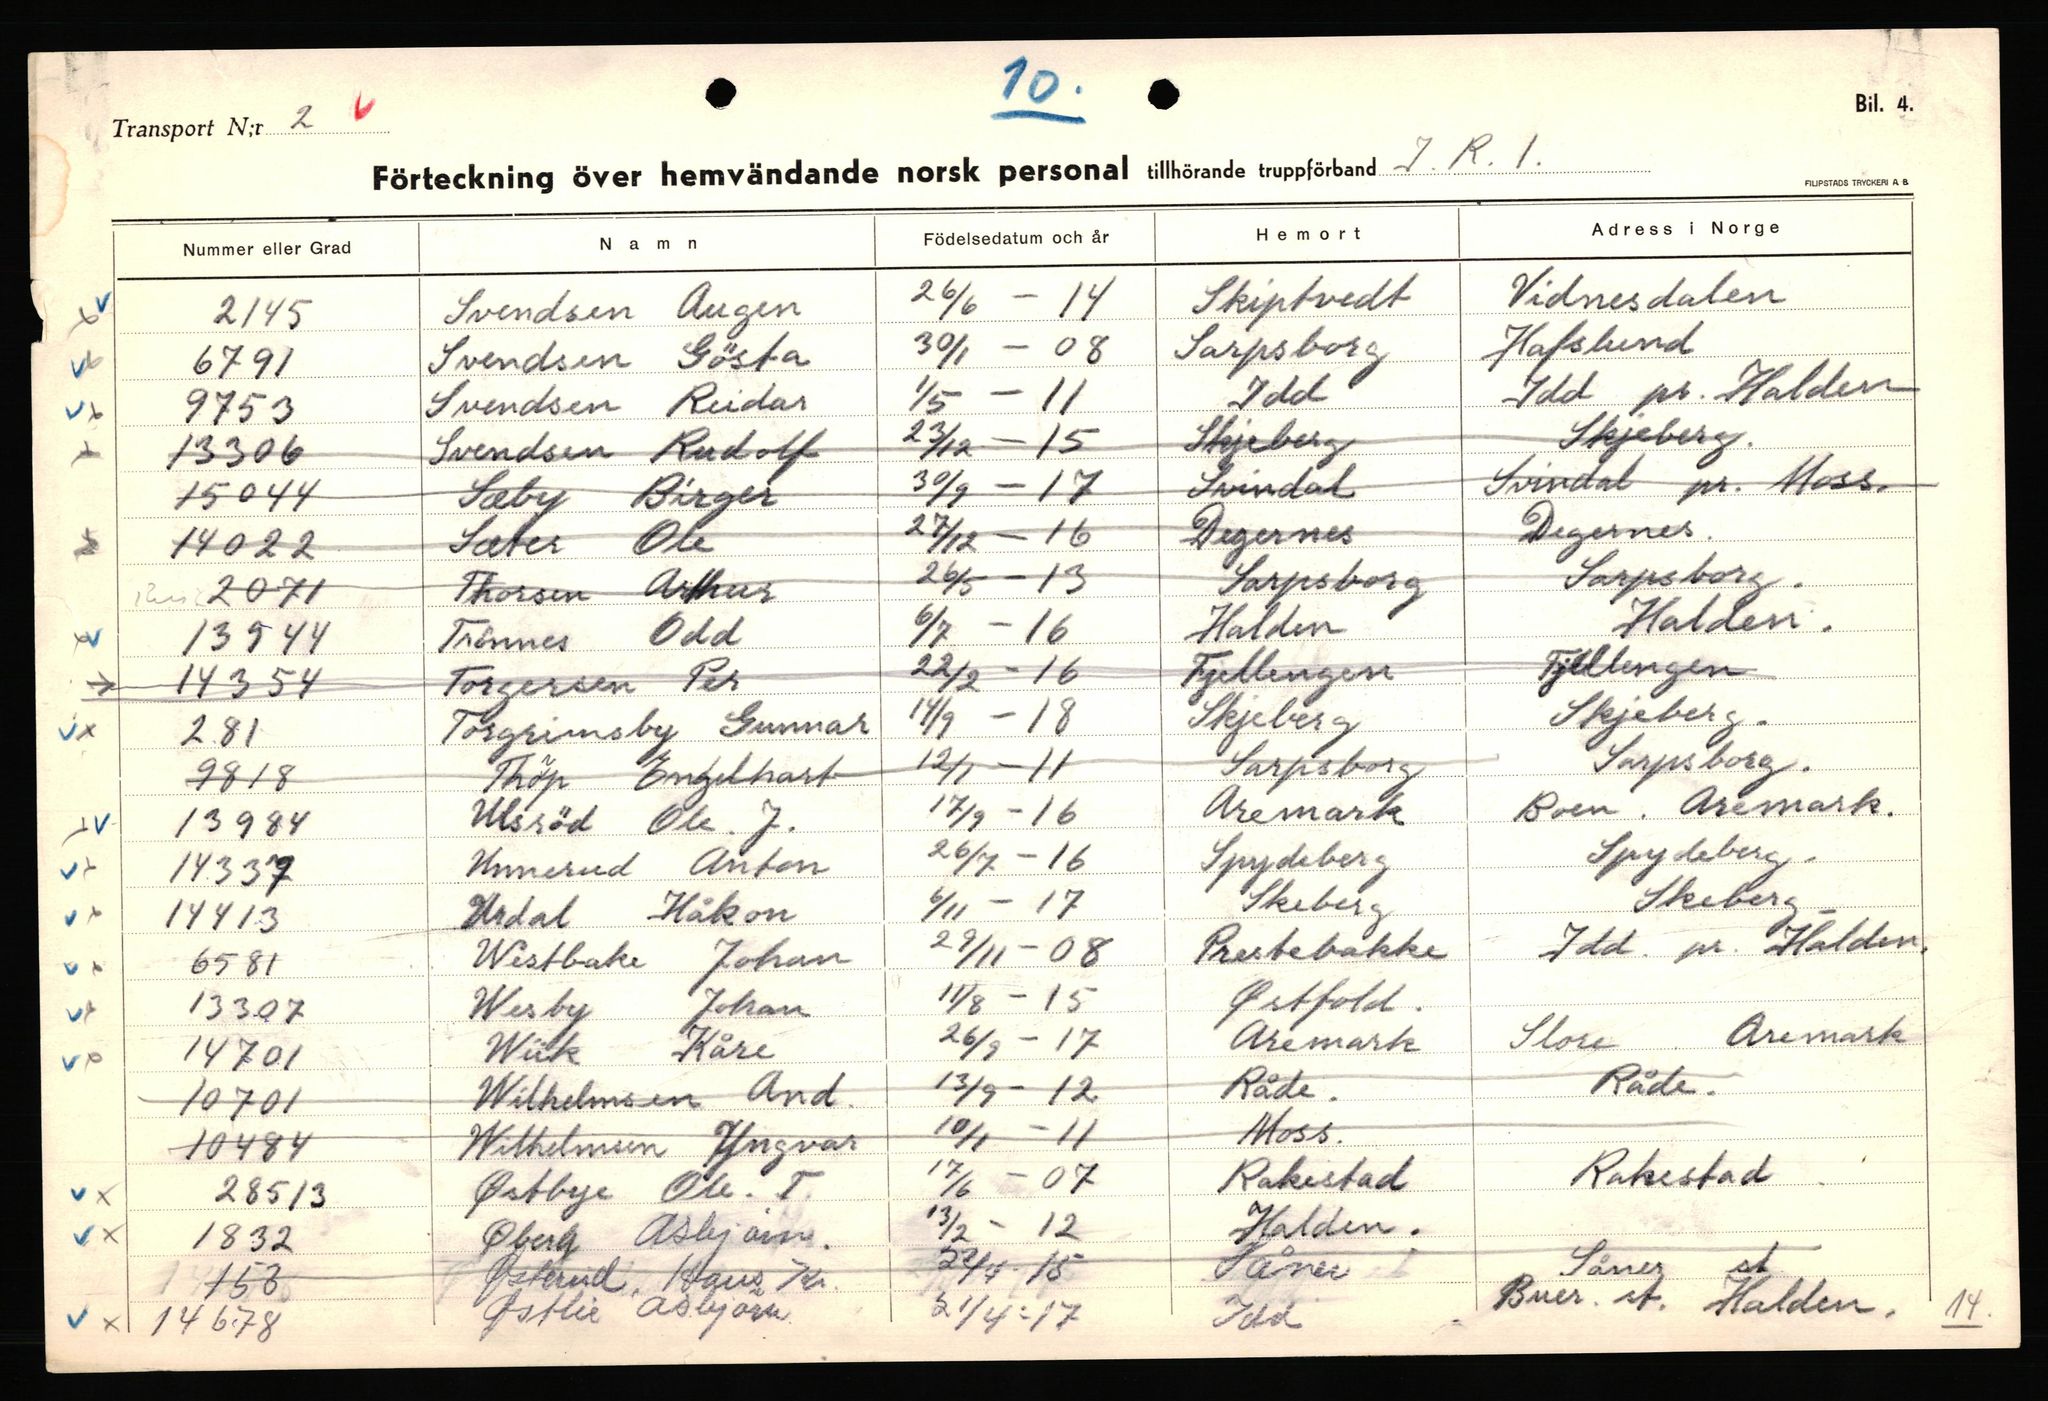 10.
Bil. 4.
Transport N:r 2 v
Förteckning över hemvändande norsk personal tillhörande truppförband J. R. 1.
FILIPSTADS TRYCKERI A B
Nummer eller Grad Namn Födelsedatum och år Hemort Adress i Norge
2145 Svendsen Augen 26/6 - 14 Skiptvedt Vidnesdalen
6791 Svendsen Gösta 30/1 - 08 Sarpsborg Hafslund
9753 Svendsen Reidar 1/5 - 11 Idd Idd pr. Halden
13306 Svendsen Rudolf 23/12 - 15 Skjeberg Skjeberg.
15044 Sæby Birger 30/9 - 17 Svindal Svindal pr. Moss.
14022 Sæter Ole 27/12 - 16 Degernes Degernes.
2071 Thorsen Arthur 26/5 - 13 Sarpsborg Sarpsborg.
13944 Trönnes Odd 6/7 - 16 Halden Halden.
14354 Torgersen Per 22/2 - 16 Fjellengen Fjellengen
281 Torgrimsby Gunnar 14/9 - 18 Skjeberg Skjeberg.
9818 Thöp Engelhart 12/1 - 11 Sarpsborg Sarpsborg.
13984 Ulsröd Ole. J. 17/9 - 16 Aremark Boen. Aremark.
14337 Unnerud Anton 26/7 - 16 Spydeberg Spydeberg.
14413 Urdal Håkon 6/11 - 17 Skeberg Skeberg
6581 Westbake Johan 29/11 - 08 Prestebakke Idd. pr. Halden.
13307 Wesby Johan 11/8 - 15 Østfold.
14701 Wiik Kåre 26/9 - 17 Aremark Slore Aremark
10701 Wilhelmsen And. 13/9 - 12 Råde. Råde.
10484 Wilhelmsen Yngvar 10/1 - 11 Moss.
28513 Østbye Ole. T. 17/6 - 07 Rakestad Rakestad
1832 Øberg Asbjörn. 13/2 - 12 Halden.
153 Østerud, Hans Kr. 22/4 - 15 Såner Såner st
14678 Østlie Asbjörn 21/4 - 17 Idd Buer. st. Halden.
14.